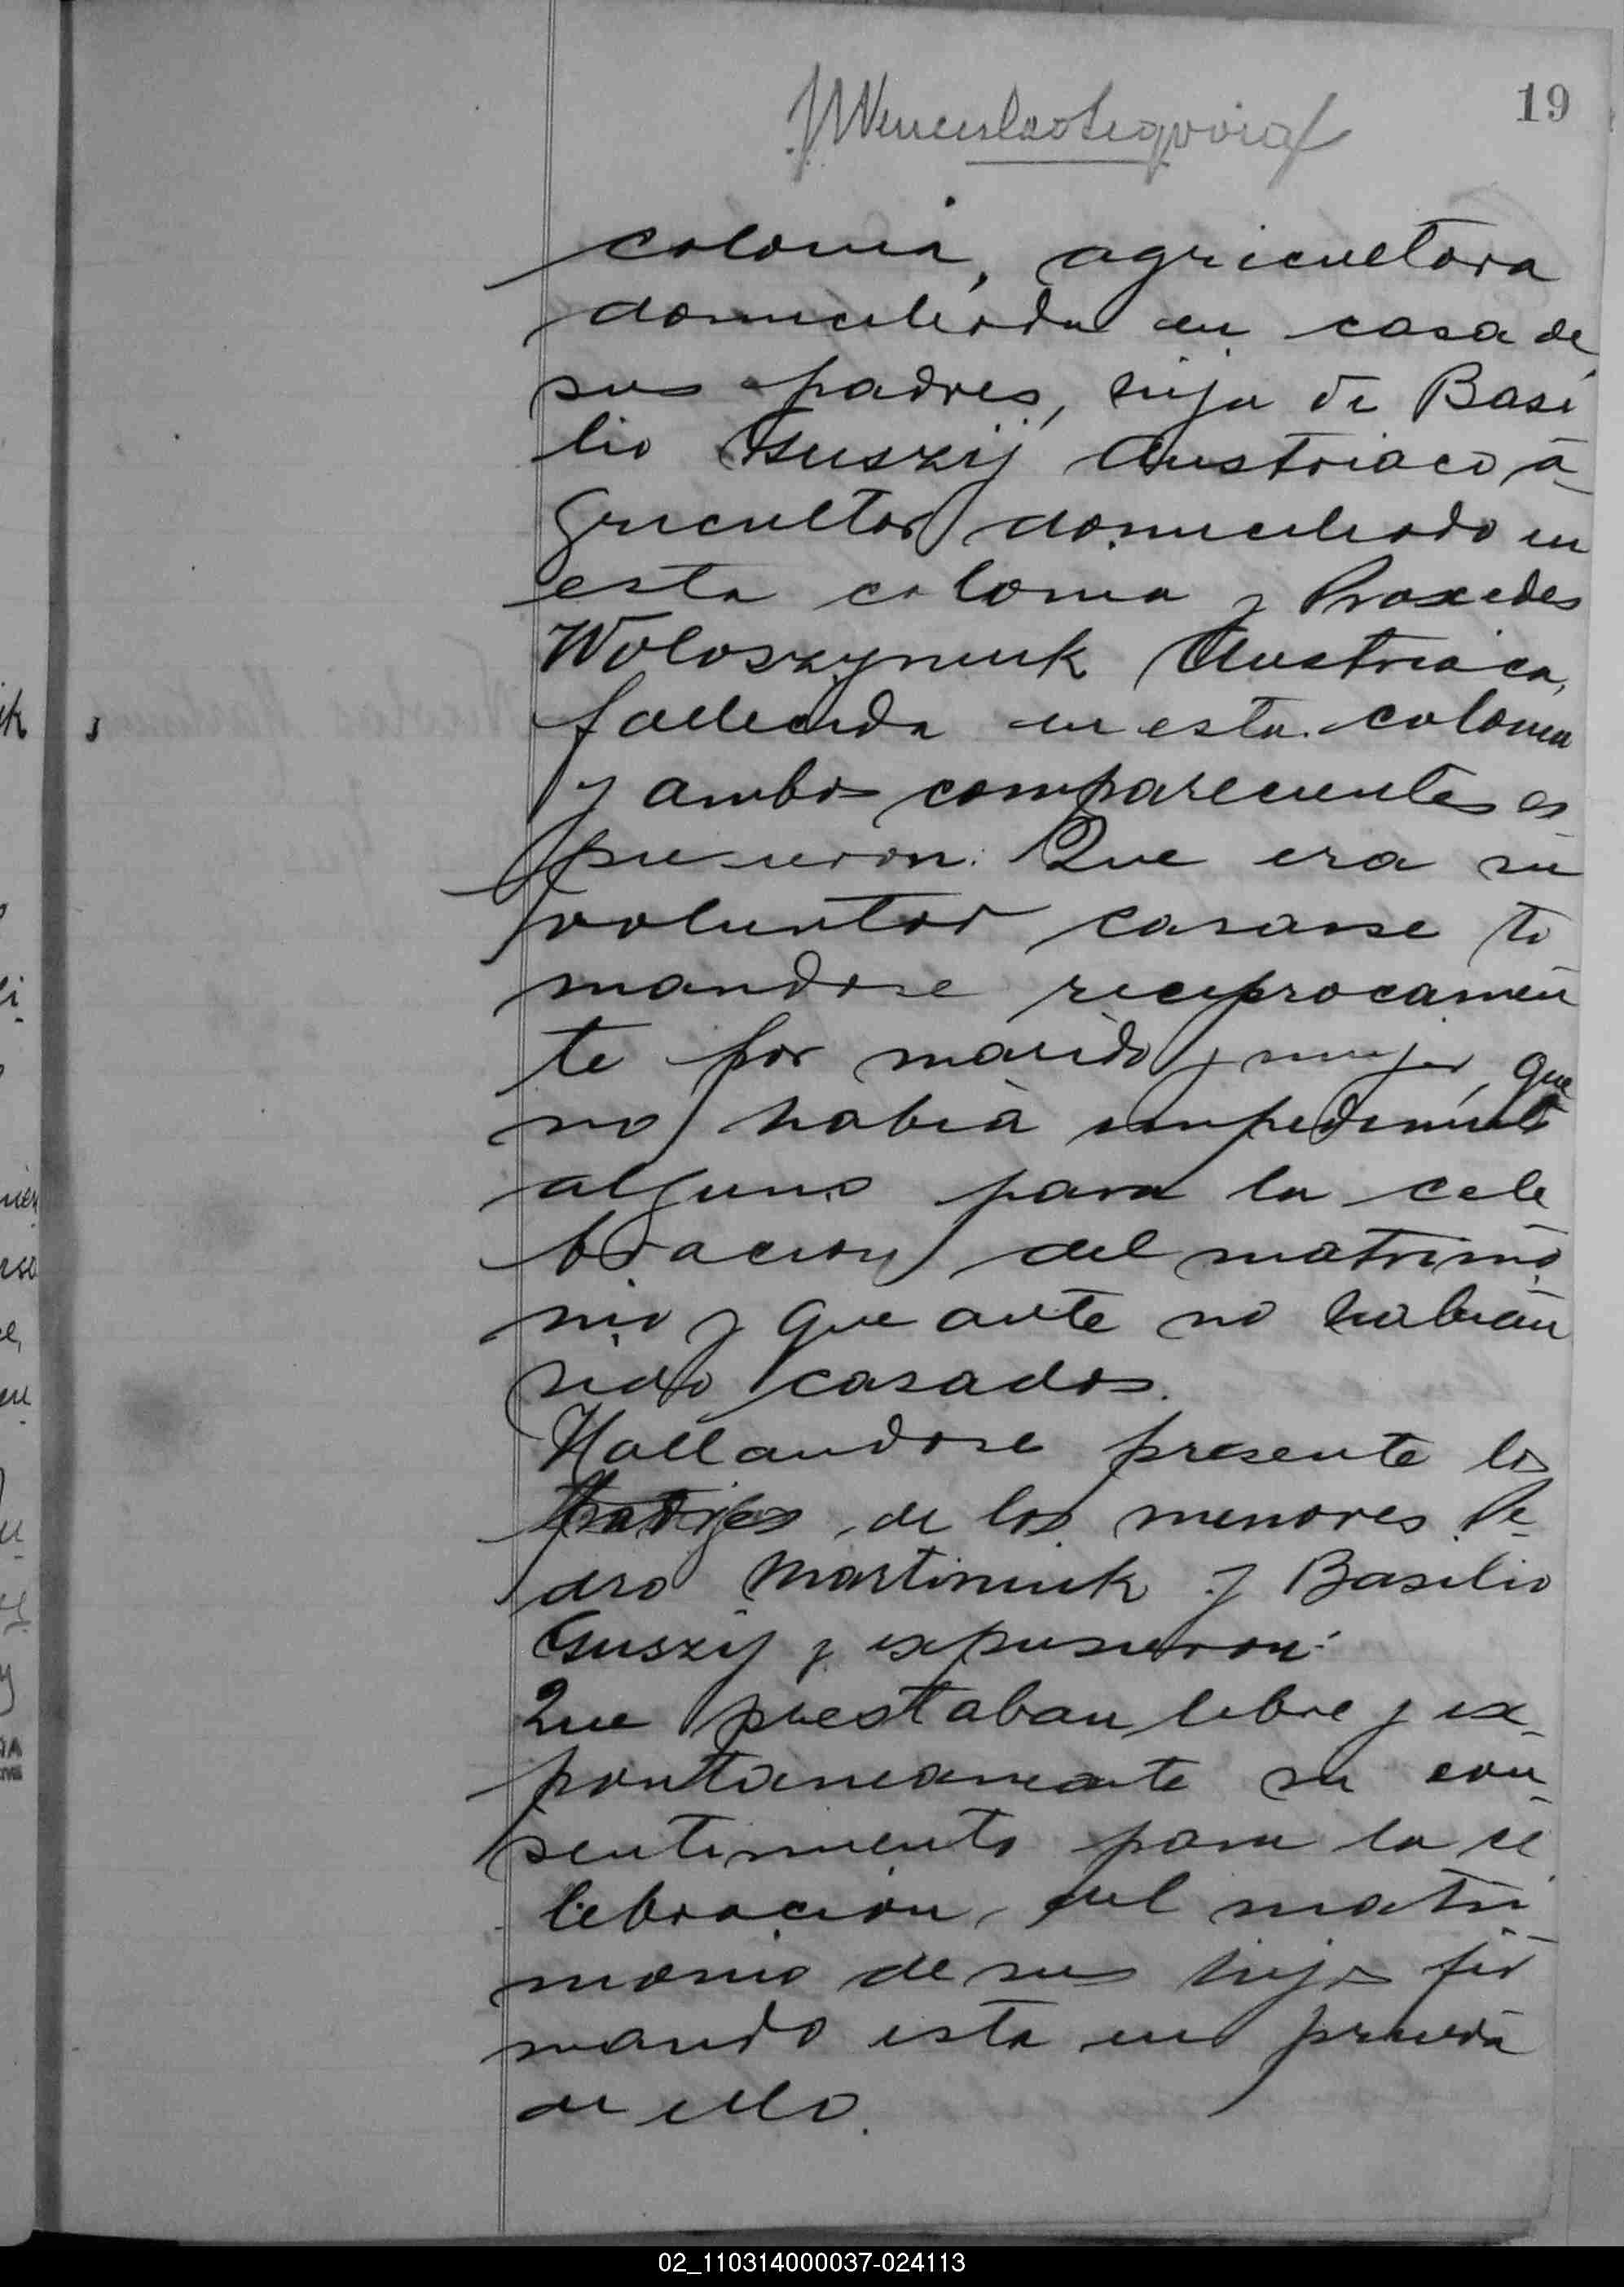 19
colonia, agricultora
domiciliada en casa de
sus padres, hija de Basi
lio Guszij Austriaco a-
gricultor domiciliado en
esta colonia y Praxedes
Woloszyniuk Austriaca,
fallecida en esta colonia
y ambos comparecientes es
pusieron: Que era su
voluntad casarse to
mandose reciprocamen
te por marido y mujer, que
no habia impedimento
alguno para la cele
bracion del matrimo
nio y que ante no habian
sido casados.
Hallandose presente los
padres de los menores Pe-
dro Martiniuk y Basilio
Guszij y expusieron:
Que prestaban libre y ex-
pontaneamente su con-
sentimiento para la ce
lebracion del matri
monio de sus hijos fir
mando esta en prueba
de ello.
02_110314000037-024113